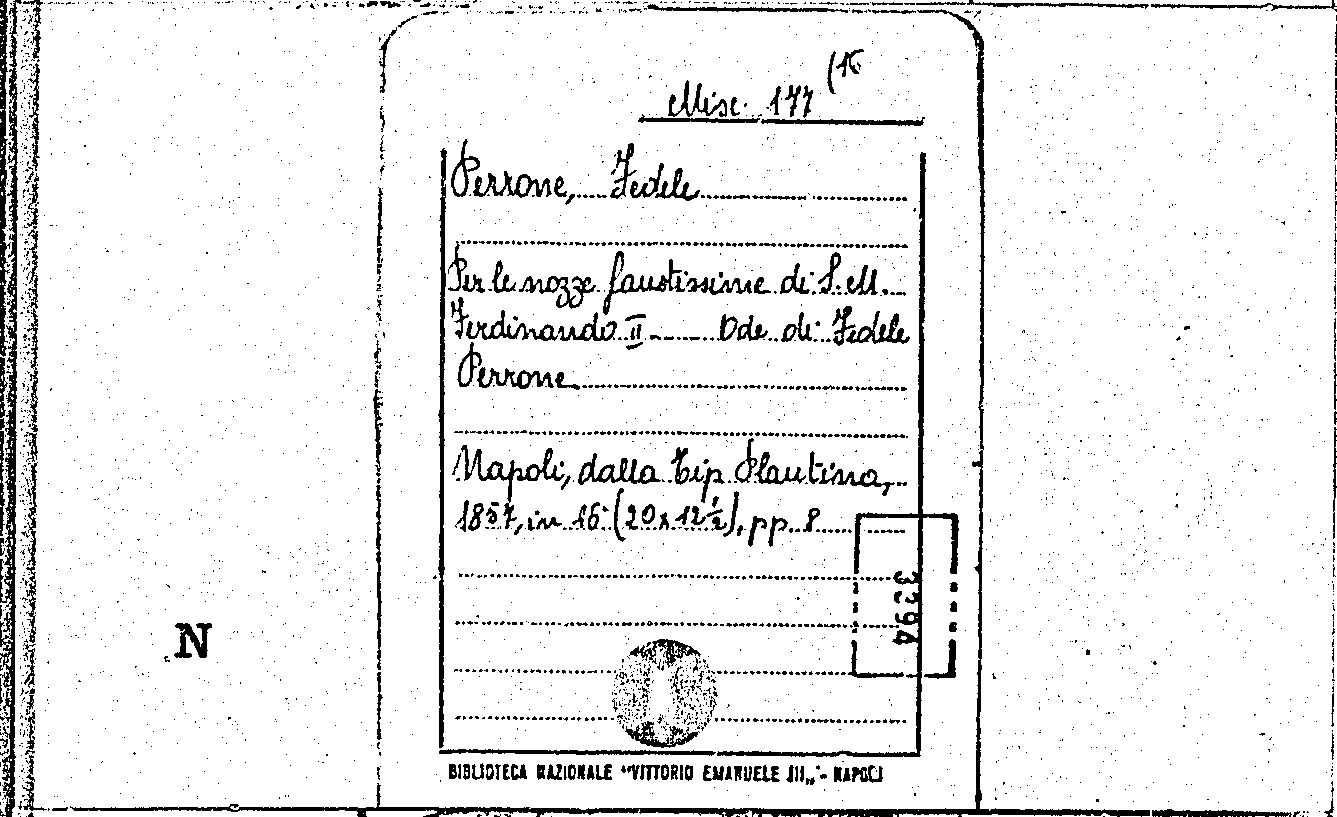 Misc. 177 (16
Perrone, Fedele
Per le nozze faustissime di S. M.
Ferdinando II ---- Ode di Fedele
Perrone
Napoli, dalla Tip Plautina,
1857, in 16° (20 x 12 ½), pp. 8
3294
N
BIBLIOTECA NAZIONALE "VITTORIO EMANUELE III„ - NAPOLI